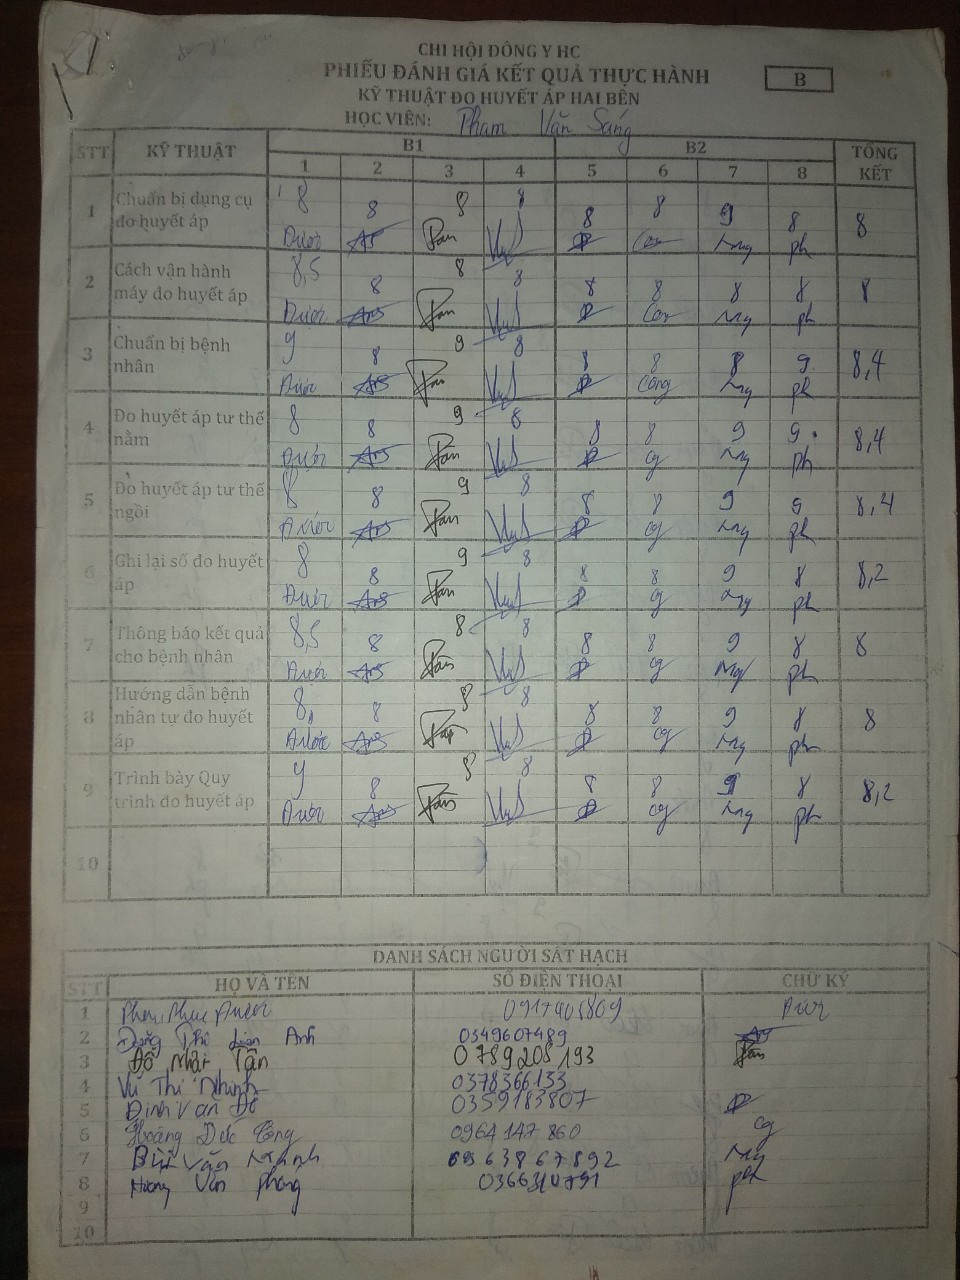 CHI HỘI ĐÔNG Y HC
PHIẾU ĐÁNH GIÁ KẾT QUẢ THỰC HÀNH
B
KỸ THUẬT ĐO HUYẾT ÁP HAI BÊN
HỌC VIÊN: Phạm Văn Sáng
STT KỸ THUẬT B1 B2 TỔNG KẾT
1 2 3 4 5 6 7 8
1 Chuẩn bị dụng cụ đo huyết áp 8 8 8 8 8 8 9 8 8
2 Cách vận hành máy đo huyết áp 8,5 8 8 8 8 8 8 8 8
3 Chuẩn bị bệnh nhân 9 8 9 8 8 8 8 9 8,4
4 Đo huyết áp tư thế nằm 8 8 9 8 8 8 9 9 8,4
5 Đo huyết áp tư thế ngồi 8 8 9 8 8 8 9 9 8,4
6 Ghi lại số đo huyết áp 8 8 9 8 8 8 9 8 8,2
7 Thông báo kết quả cho bệnh nhân 8,5 8 8 8 8 8 9 8 8
8 Hướng dẫn bệnh nhân tự đo huyết áp 8 8 8 8 8 8 9 8 8
9 Trình bày Quy trình đo huyết áp 9 8 8 8 8 8 9 8 8,2
10
DANH SÁCH NGƯỜI SÁT HẠCH
STT HỌ VÀ TÊN SỐ ĐIỆN THOẠI CHỮ KÝ
1 0917405809
2 Anh 0349607489
3 Đỗ Nhật Tân 0789208193 Tân
4 Vũ Thị Nhinh 0378366133
5 Đinh Văn Đô 0359183807
6 Hoàng Đức Công 0964147860 cg
7 Bùi Văn Mạnh 0963867892
8 Hương Văn Phong 0366310791 ph
9
10